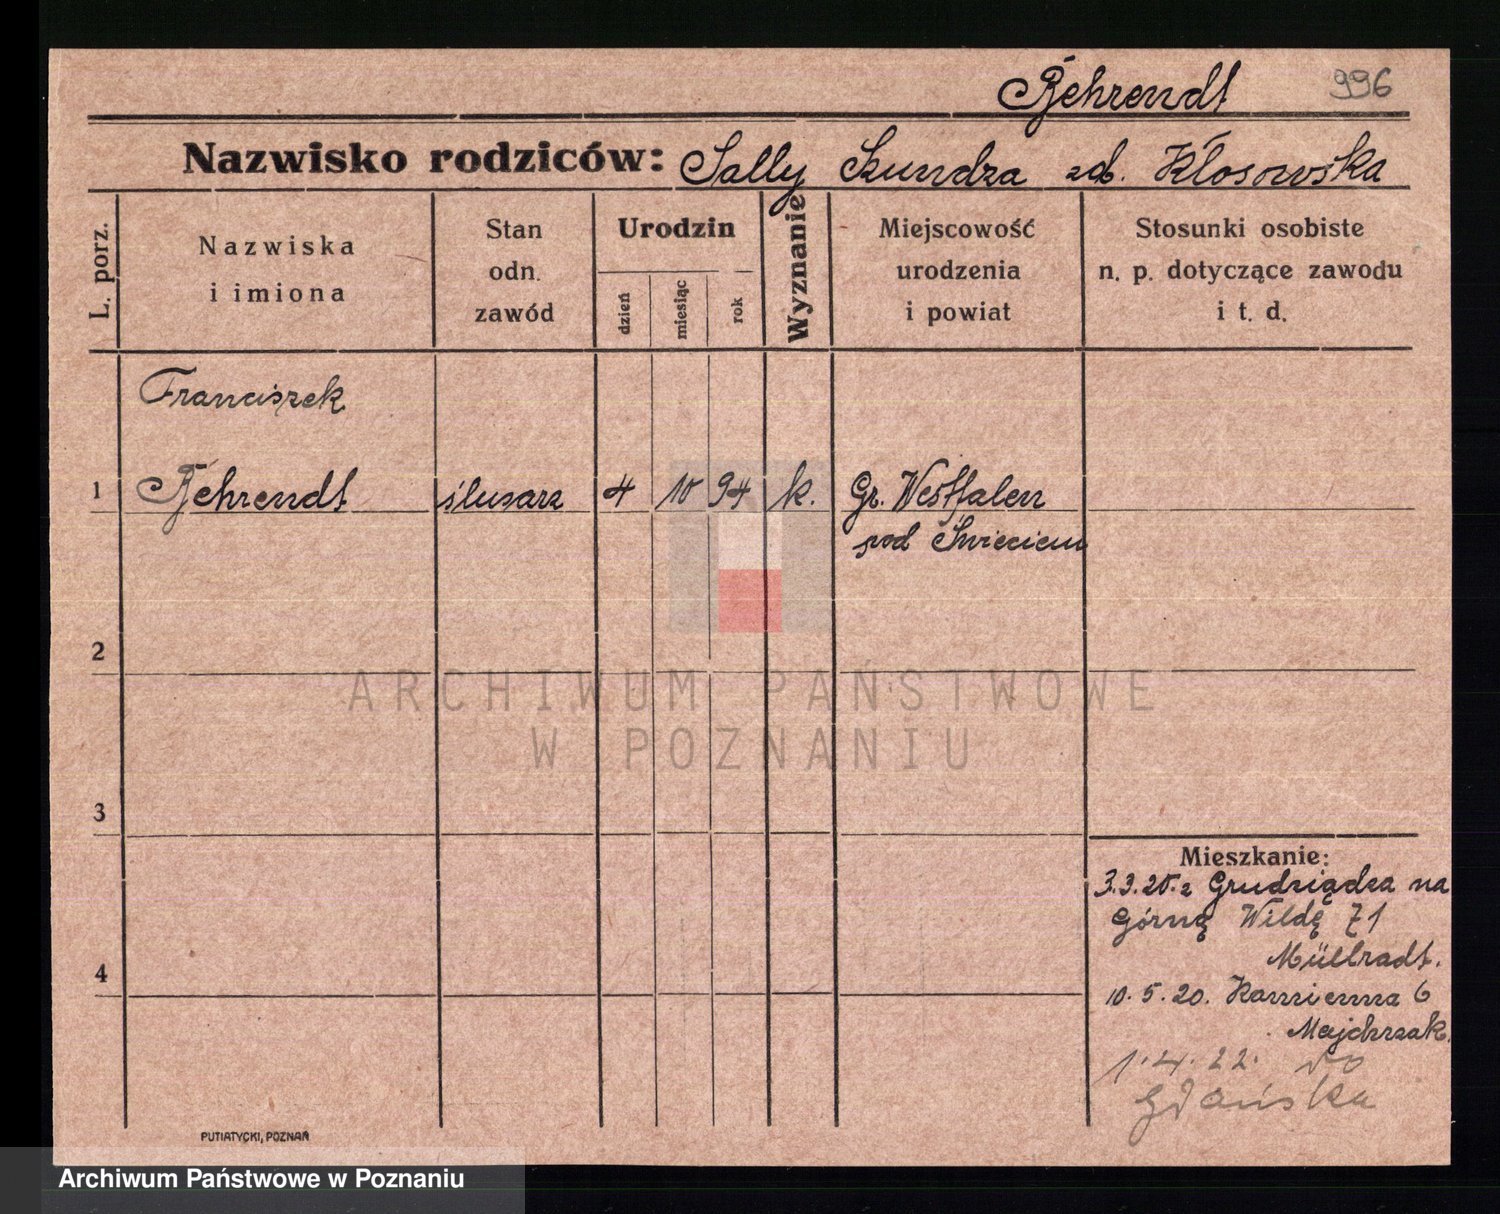 Behrendt 996
Nazwisko rodziców: Sally zd. Kłosowska
L. porz.
Nazwiska
i imiona
Stan
odn.
zawód
Urodzin
dzień
miesiąc
rok
Wyznanie
Miejscowość
urodzenia
i powiat
Stosunki osobiste
n. p. dotyczące zawodu
i t. d.
Franciszek
1 Behrendt ślusarz 4 10 94 k. Gr. Westfalen
pod Świeciem
2
ARCHIWUM PAŃSTWOWE
W POZNANIU
3
Mieszkanie:
3.3.20. z Grudziądza na
Górną Wildę 71
Müllradt.
4
10.5.20. Kamienna 6
Majchrzak.
1.4.22. do
Gdańska
PUTIATYCKI, POZNAŃ
Archiwum Państwowe w Poznaniu